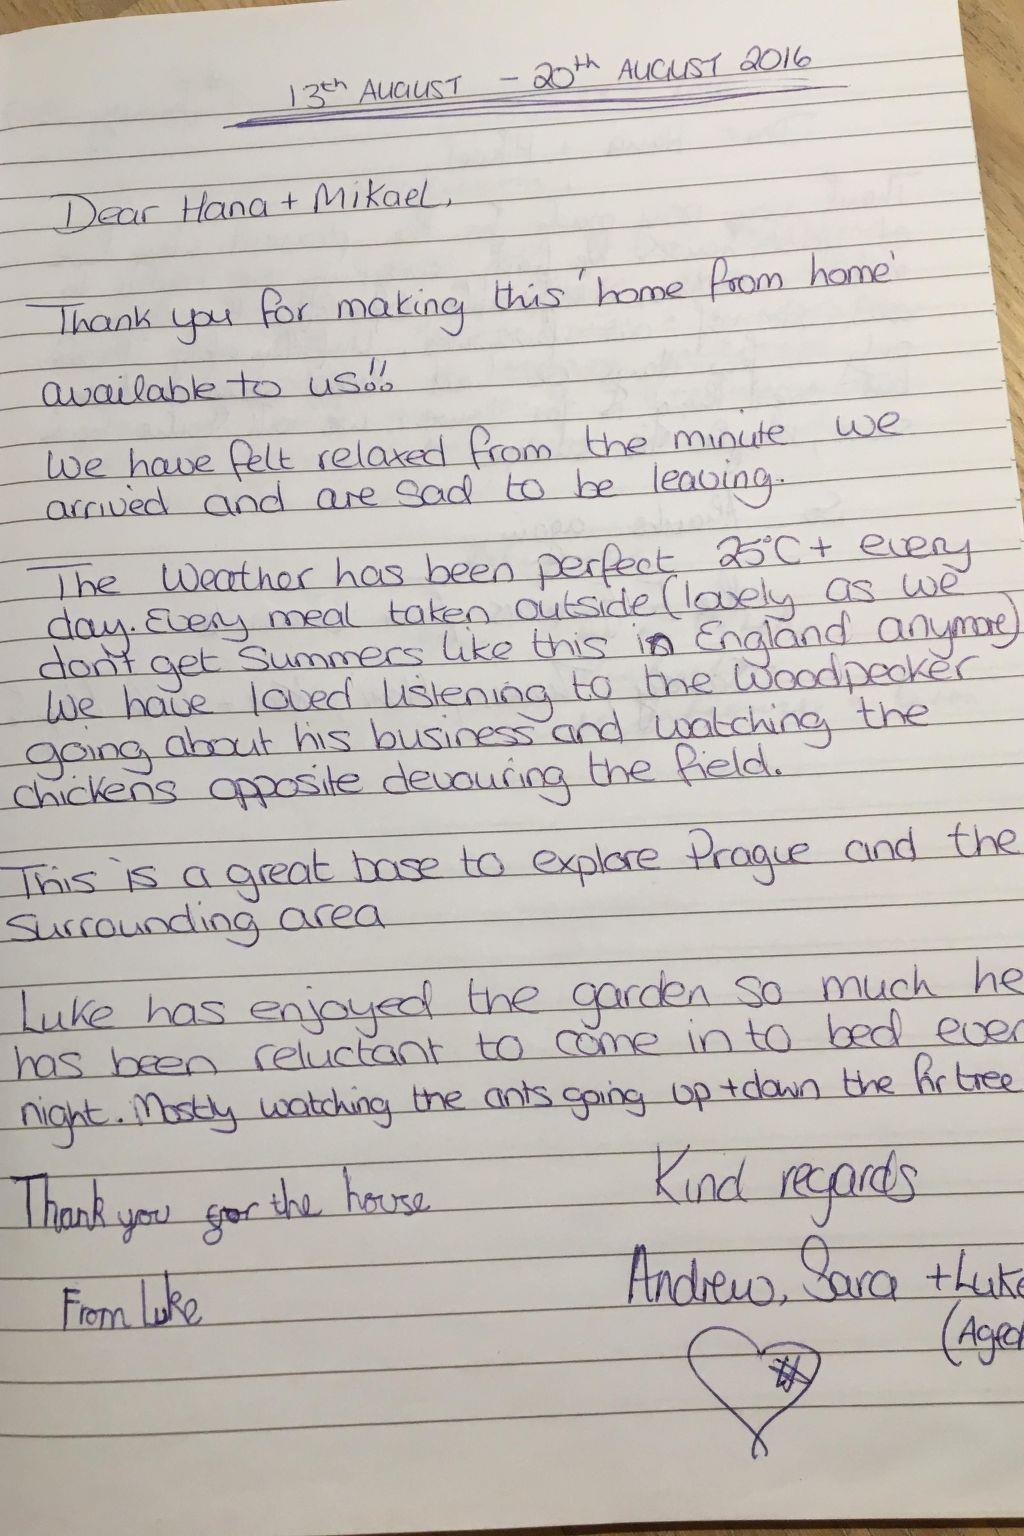 13th AUGUST - 20th AUGUST 2016
Dear Hana + Mikael,
Thank you for making this 'home from home'
available to us!!
We have felt relaxed from the minute we
arrived and are sad to be leaving.
The Weather has been perfect 25°C+ every
day. Every meal taken outside (lovely as we
don't get Summers like this in England anymore)
We have loved listening to the Woodpecker
going about his business and watching the
chickens opposite devouring the field.
This is a great base to explore Prague and the
surrounding area
Luke has enjoyed the garden so much he
has been reluctant to come in to bed ever
night. Mostly watching the ants going up + down the fir tree
Kind regards
Thank you for the house
Andrew, Sara + Luke
From Luke
(Aged